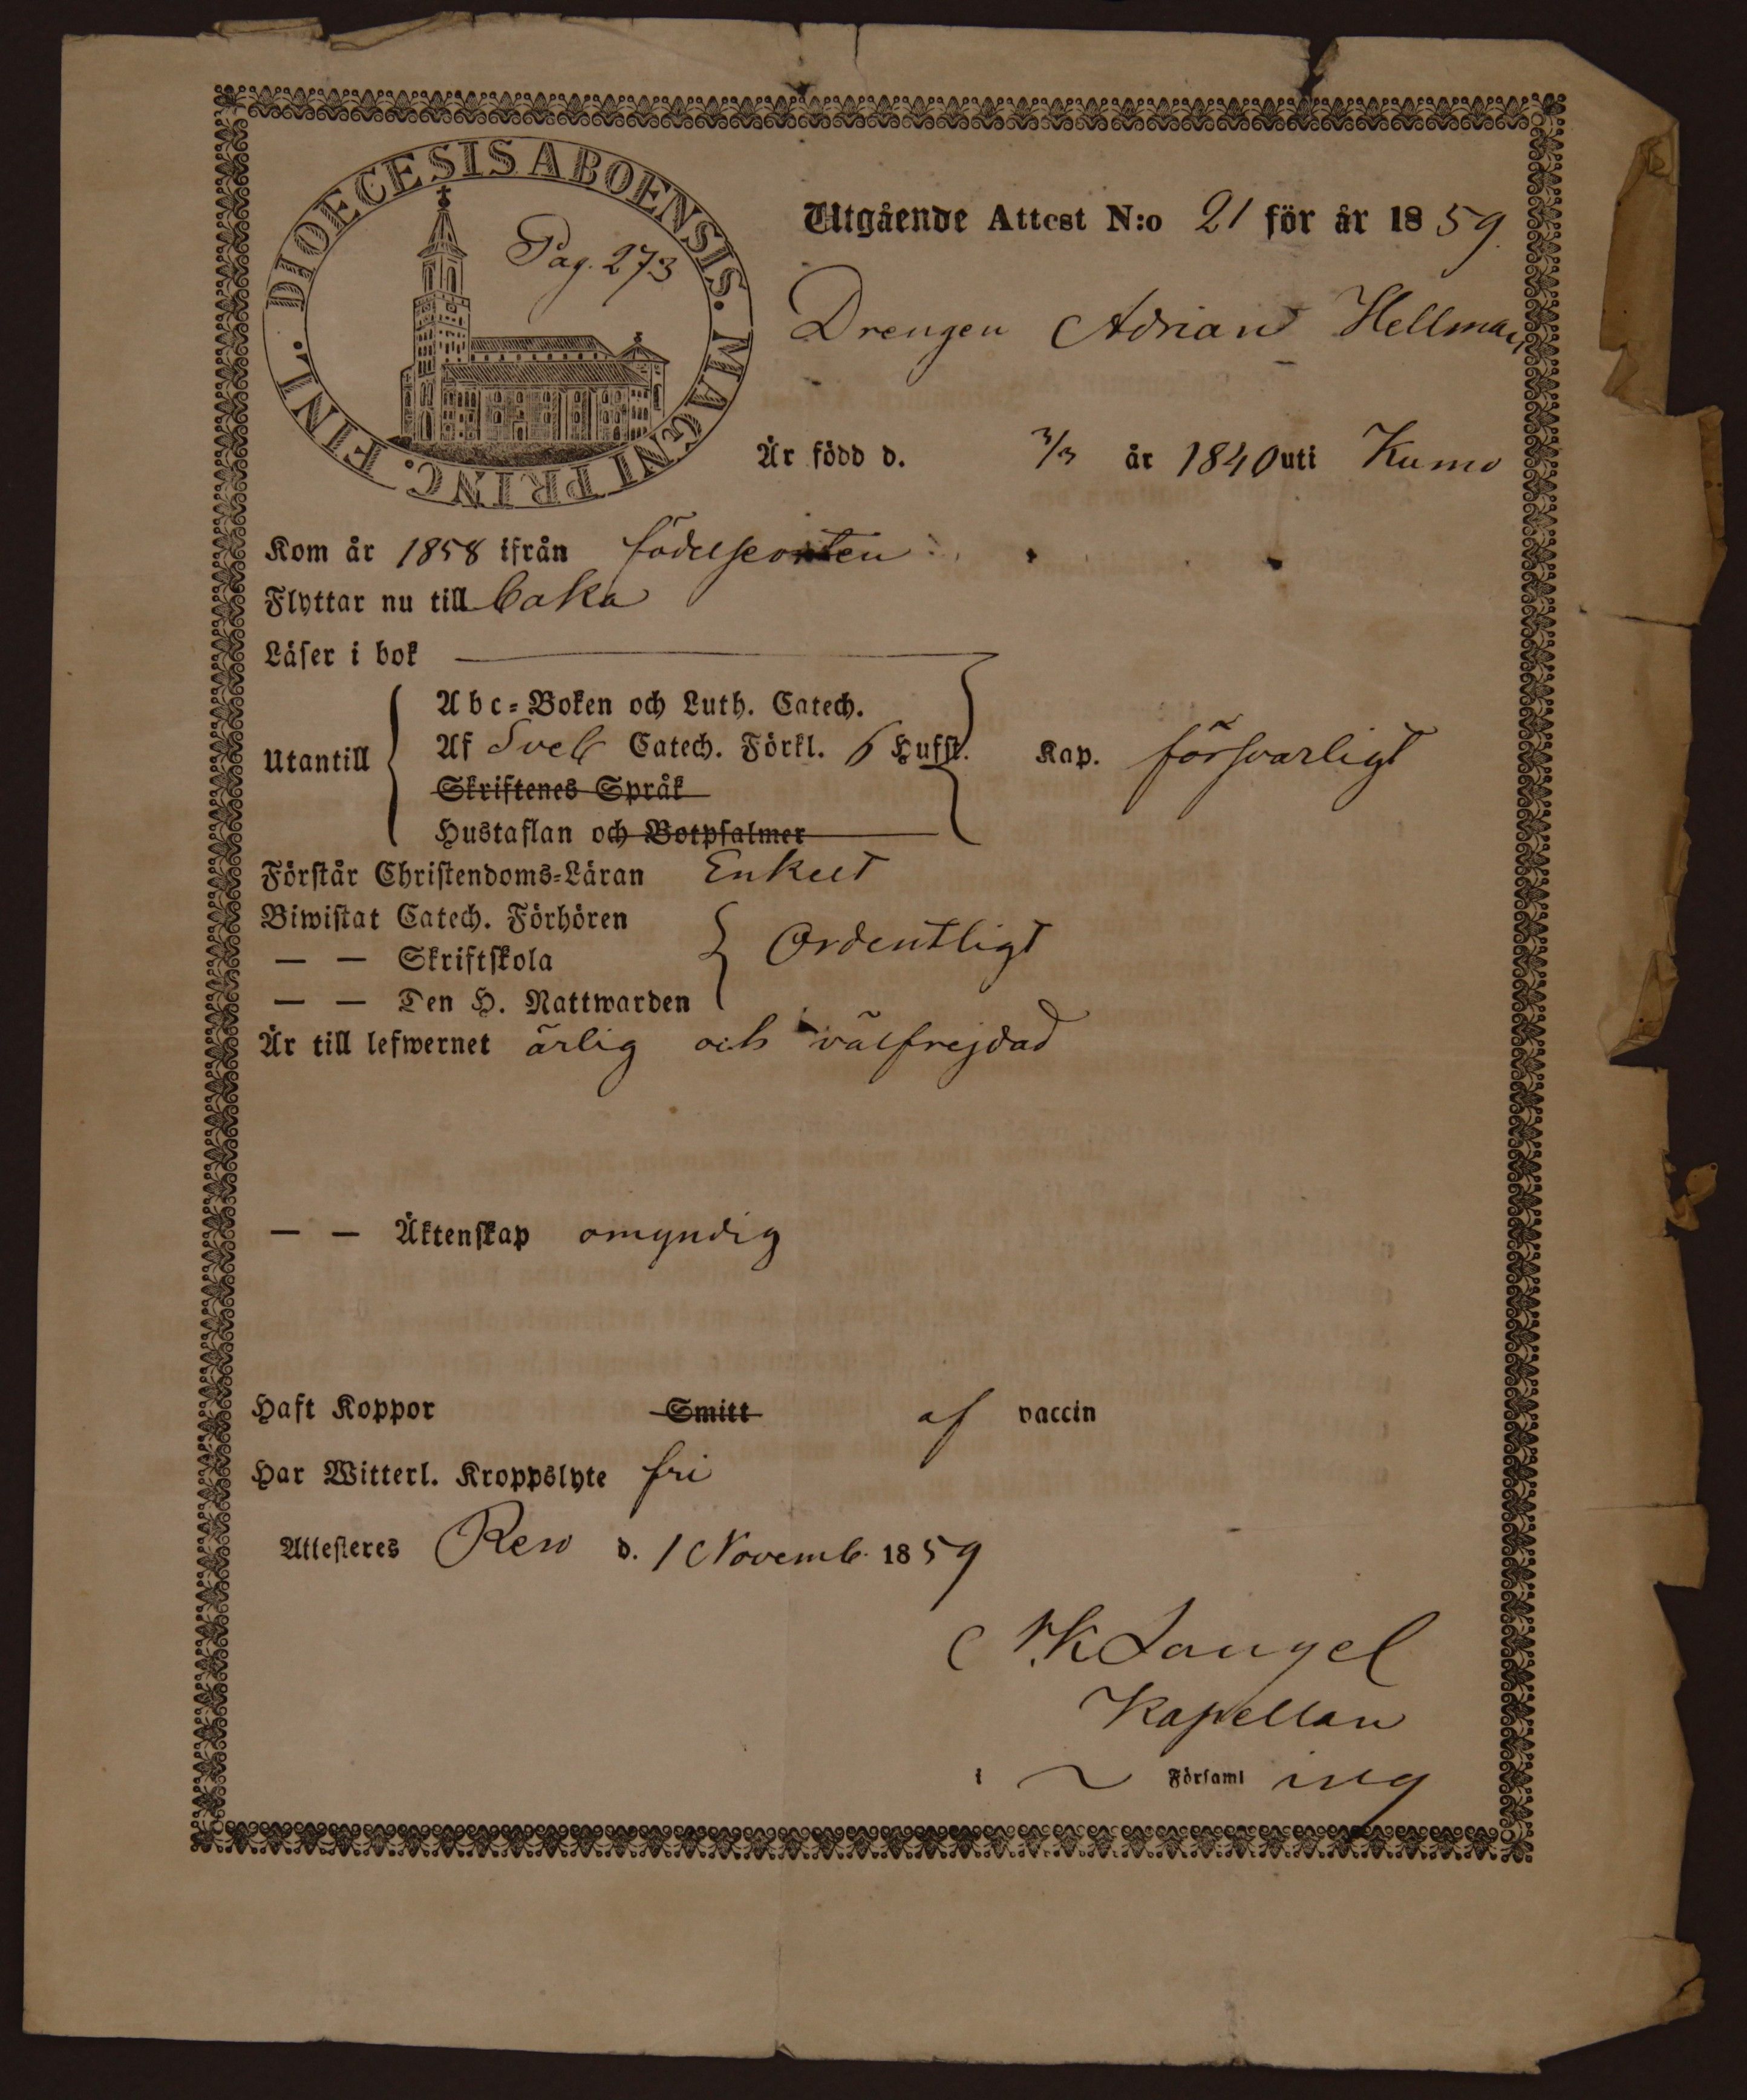 DIOECESIS ABOENSIS. MAGNI PRINC. FINL.
Pag. 273
Utgående Attest N:o 21 för år 1859.
Drengen Adrian Hellman
Är född d. 3/3 år 1840 uti Kumo
Kom år 1858 ifrån födelseorten
Flyttar nu till
Läser i bok
Utantill
Abc-Boken och Luth. Catech.
Af Sveb Catech. Förkl. 6 Hufst. Kap. försvarligt
Skriftenes Språk
Hustaflan och Botpsalmer
Förstår Christendoms-Läran Enkelt
Biwistat Catech. Förhören
— — Skriftskola Ordentligt
— — Den H. Nattwarden
Är till lefwernet ärlig och välfrejdad
— — Äktenskap omyndig
Haft Koppor Smitt af vaccin
Har Witterl. Kroppslyte fri
Attesteres d. 1 Novemb. 1859
Kapellan
i Församl ing